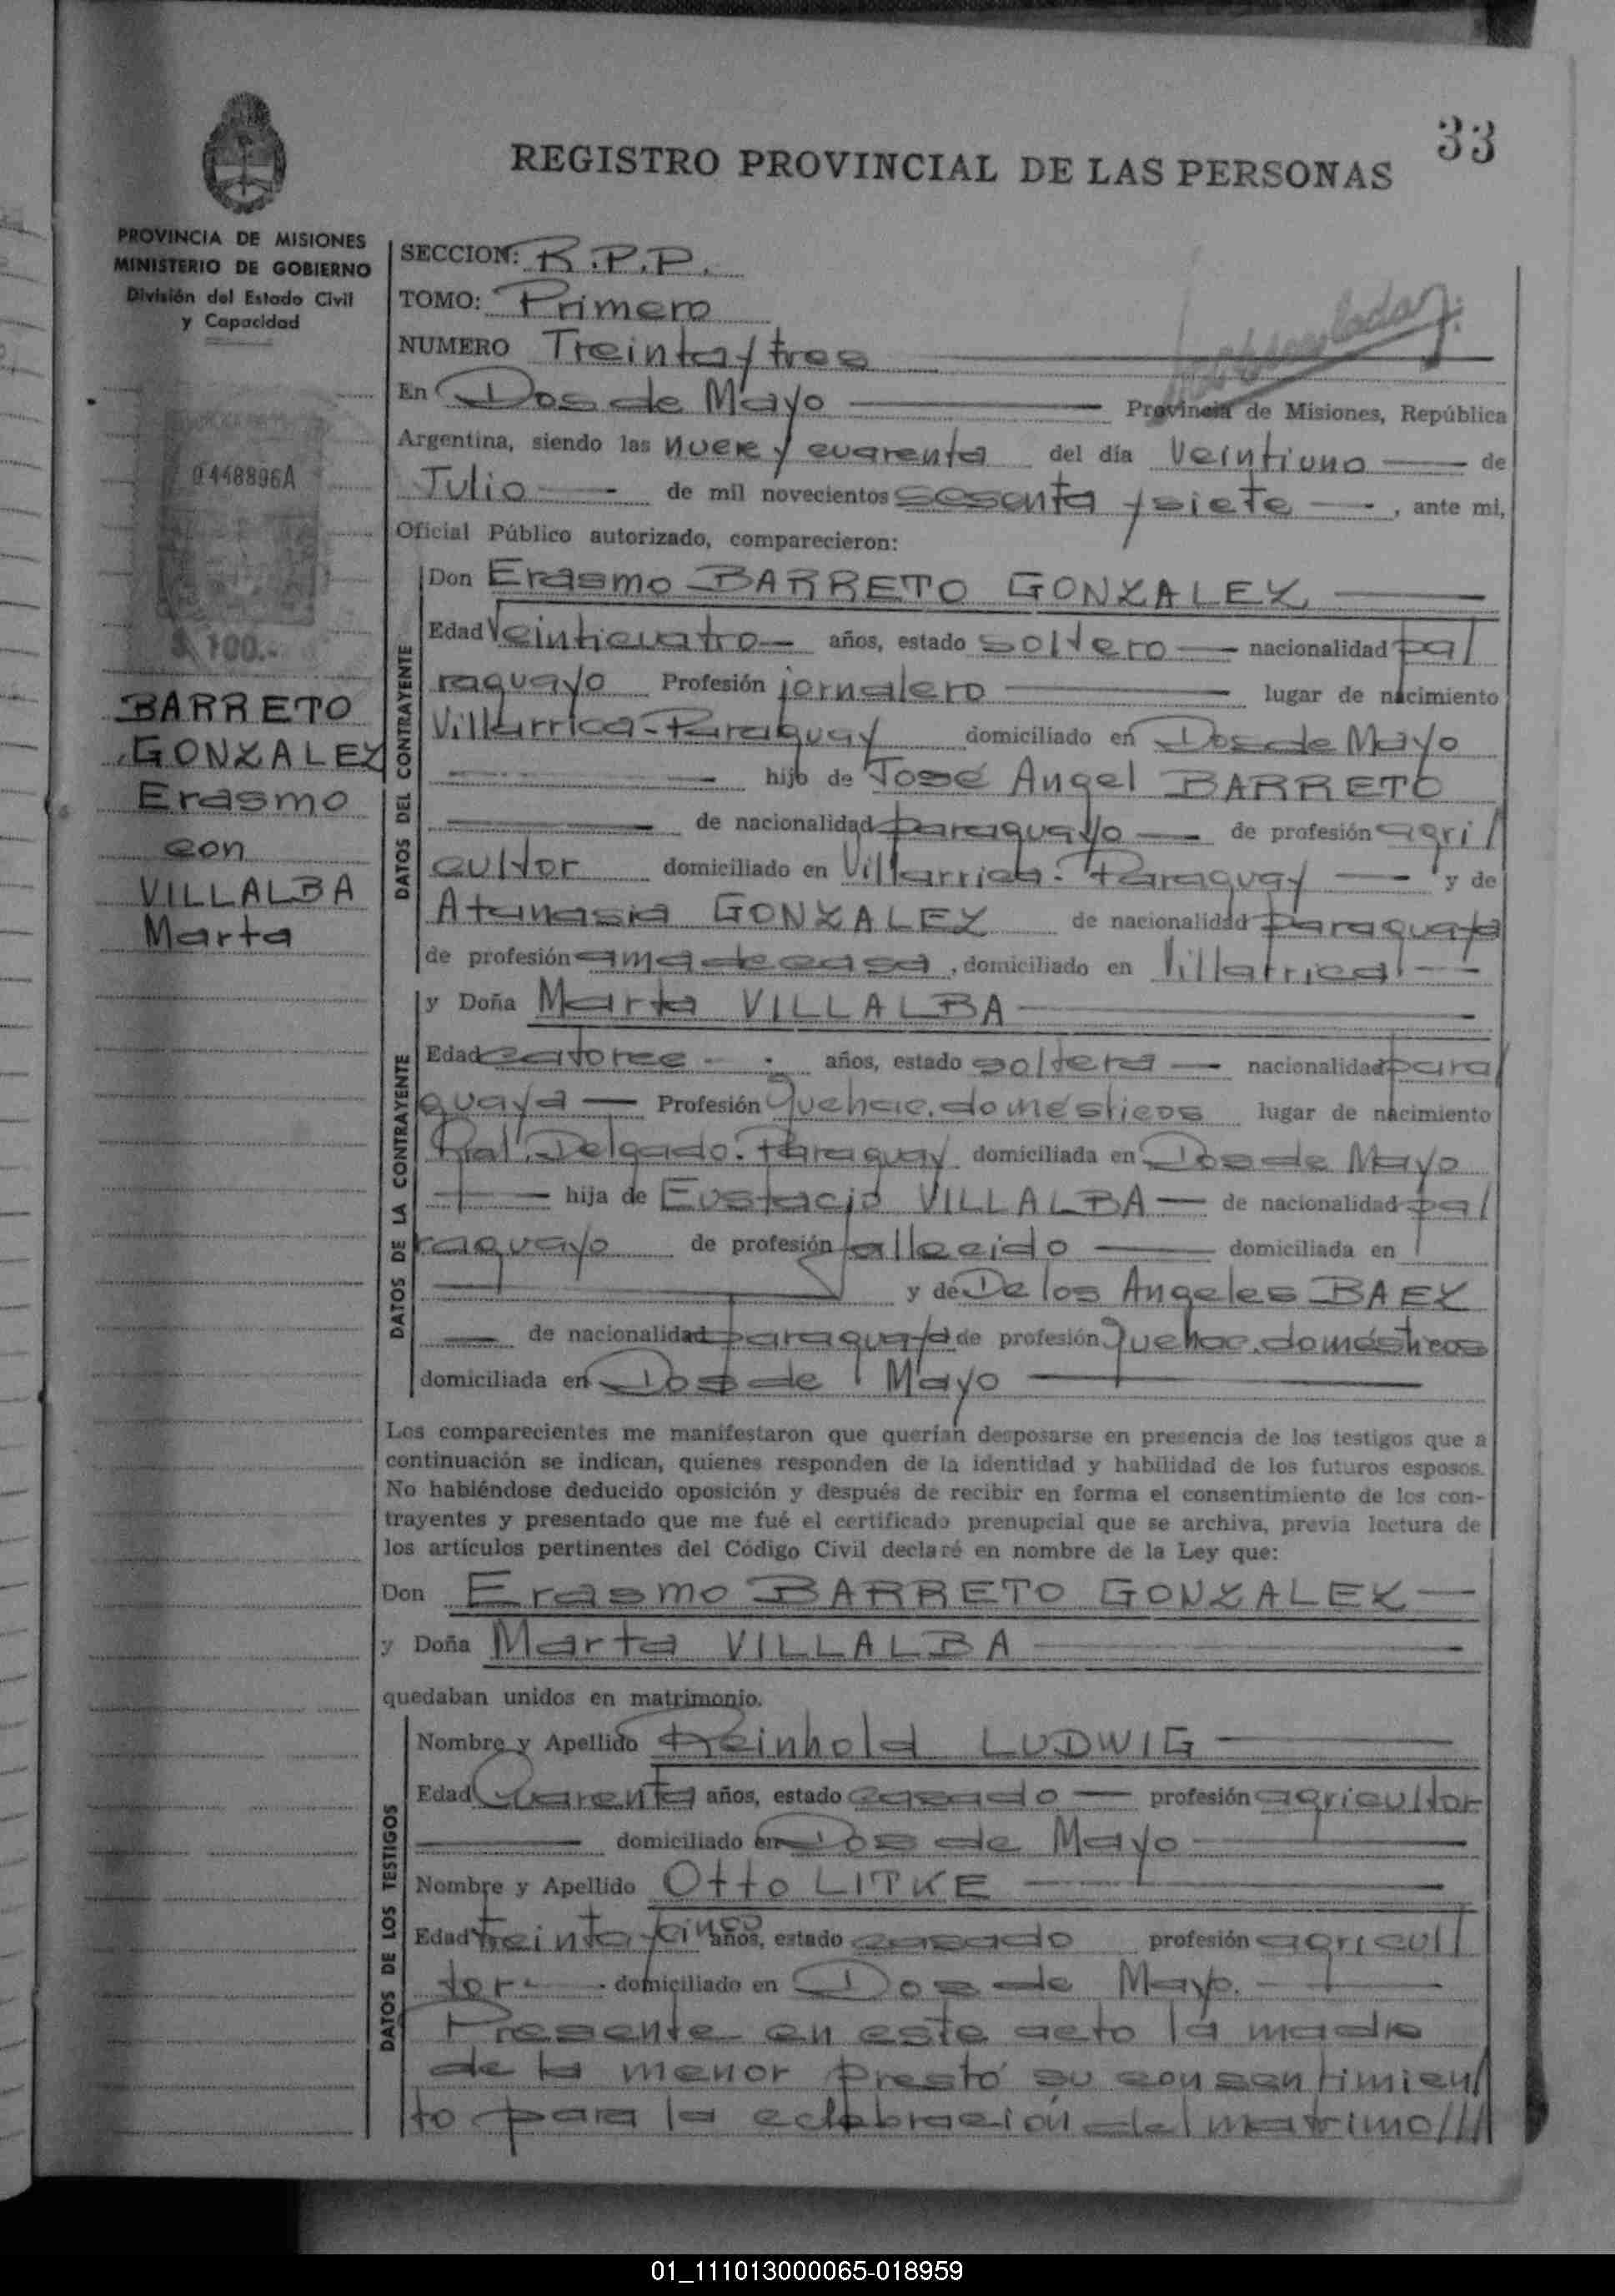 33
REGISTRO PROVINCIAL DE LAS PERSONAS
PROVINCIA DE MISIONES
MINISTERIO DE GOBIERNO
División del Estado Civil
y Capacidad
0448896A
$ 100.-
BARRETO
GONZALEZ
Erasmo
con
VILLALBA
Marta
SECCION: R.P.P.
TOMO: Primero
NUMERO Treinta y tres
En Dos de Mayo Provincia de Misiones, República
Argentina, siendo las nueve y cuarenta del día veintiuno de
Julio de mil novecientos sesenta y siete, ante mi,
Oficial Público autorizado, comparecieron:
DATOS DEL CONTRAYENTE
Don Erasmo BARRETO GONZALEZ
Edad veinticuatro años, estado soltero nacionalidad pa/
raguayo Profesión jornalero lugar de nacimiento
Villarrica-Paraguay domiciliado en Dos de Mayo
hijo de José Angel BARRETO
de nacionalidad paraguayo de profesión agri/
cultor domiciliado en Villarrica-Paraguay y de
Atanasia GONZALEZ de nacionalidad paraguaya
de profesión ama de casa, domiciliado en Villarrica
DATOS DE LA CONTRAYENTE
y Doña Marta VILLALBA
Edad catorce años, estado soltera nacionalidad para/
guaya Profesión Quehac. domésticos lugar de nacimiento
Delgado. Paraguay domiciliada en Dos de Mayo
hija de Eustacio VILLALBA de nacionalidad pa/
raguayo de profesión fallecido domiciliada en
y de De los Angeles BAEZ
de nacionalidad paraguaya de profesión Quehac. domésticos
domiciliada en Dos de Mayo
Los comparecientes me manifestaron que querían desposarse en presencia de los testigos que a
continuación se indican, quienes responden de la identidad y habilidad de los futuros esposos.
No habiéndose deducido oposición y después de recibir en forma el consentimiento de los con-
trayentes y presentado que me fué el certificado prenupcial que se archiva, previa lectura de
los artículos pertinentes del Código Civil declaré en nombre de la Ley que:
Don Erasmo BARRETO GONZALEZ
y Doña Marta VILLALBA
quedaban unidos en matrimonio.
DATOS DE LOS TESTIGOS
Nombre y Apellido Reinhold LUDWIG
Edad Cuarenta años, estado casado profesión agricultor
domiciliado en Dos de Mayo
Nombre y Apellido Otto LITKE
Edad treinta y cinco años, estado casado profesión agricul/
tor domiciliado en Dos de Mayo.
Presente en este acto la madre
de la menor prestó su consentimien/
to para la celebración del matrimo///
01_111013000065-018959